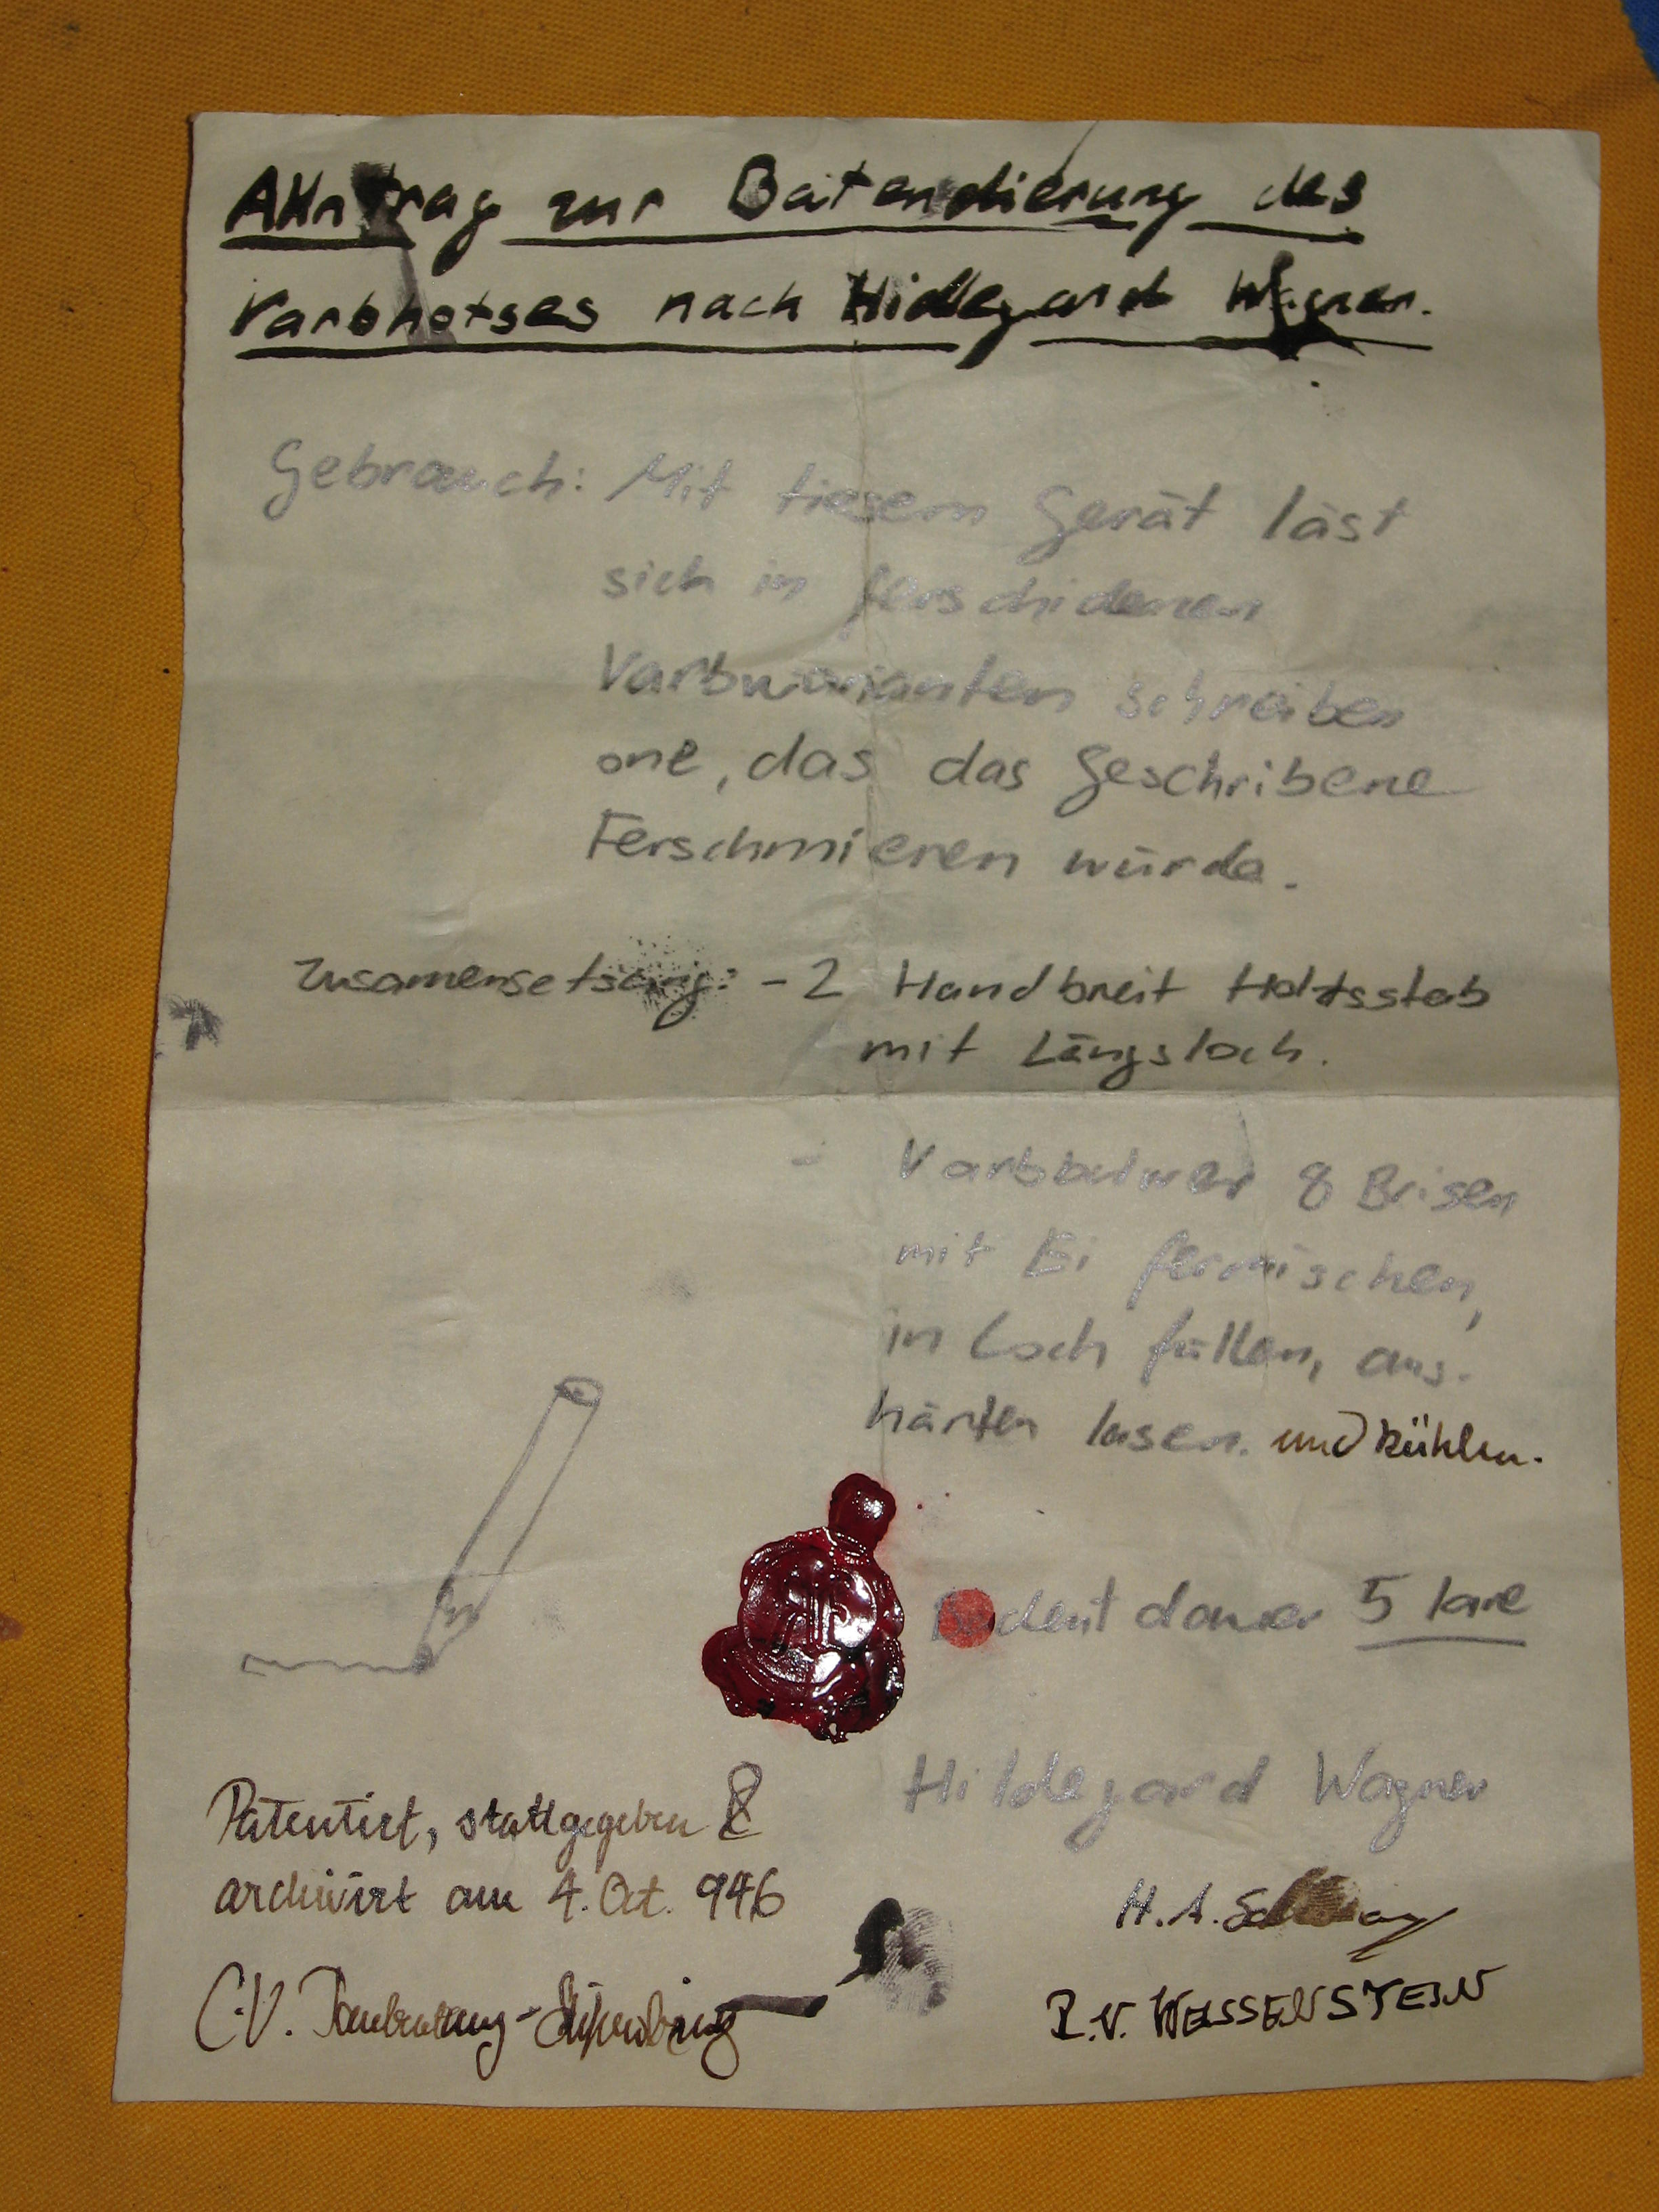 Antrag zur Batendierung des
Varbhotses nach Hidlegard Wagner.
Gebrauch: Mit tiesem Gerät läst
sich in ferschidenen
Varbwarianten schreiben
one, das das Geschribene
Ferschmieren würde.
Zusamensetsung: - 2 Handbreit Holtsstab
mit Längsloch.
- Varbbulwer 8 Brisen
mit Ei fermischen,
in Loch füllen, aus-
härten lasen. und kühlen.
dauer 5 Iare
Hildegard Wagner
Patentirt, stattgegeben &
archivirt am 4. Oct. 946
H. A.
C.V.
R.V. WEISSENSTEIN